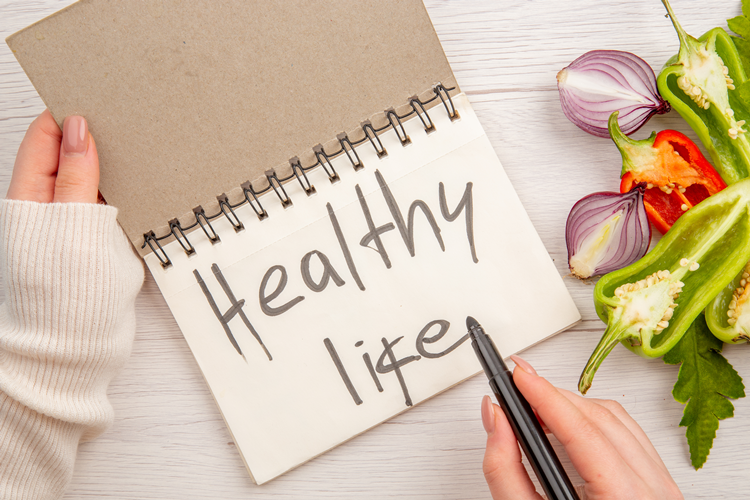 Healthy
life